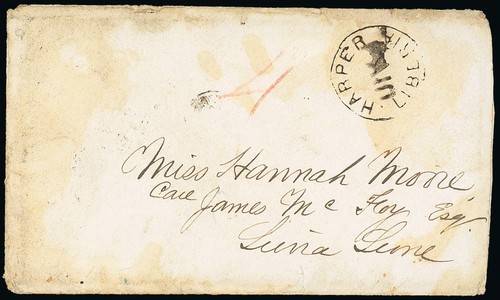 HARPER LIBERIA
4
Miss Hannah Moore
Care James Mc Foy Esq.
Sierra Leone